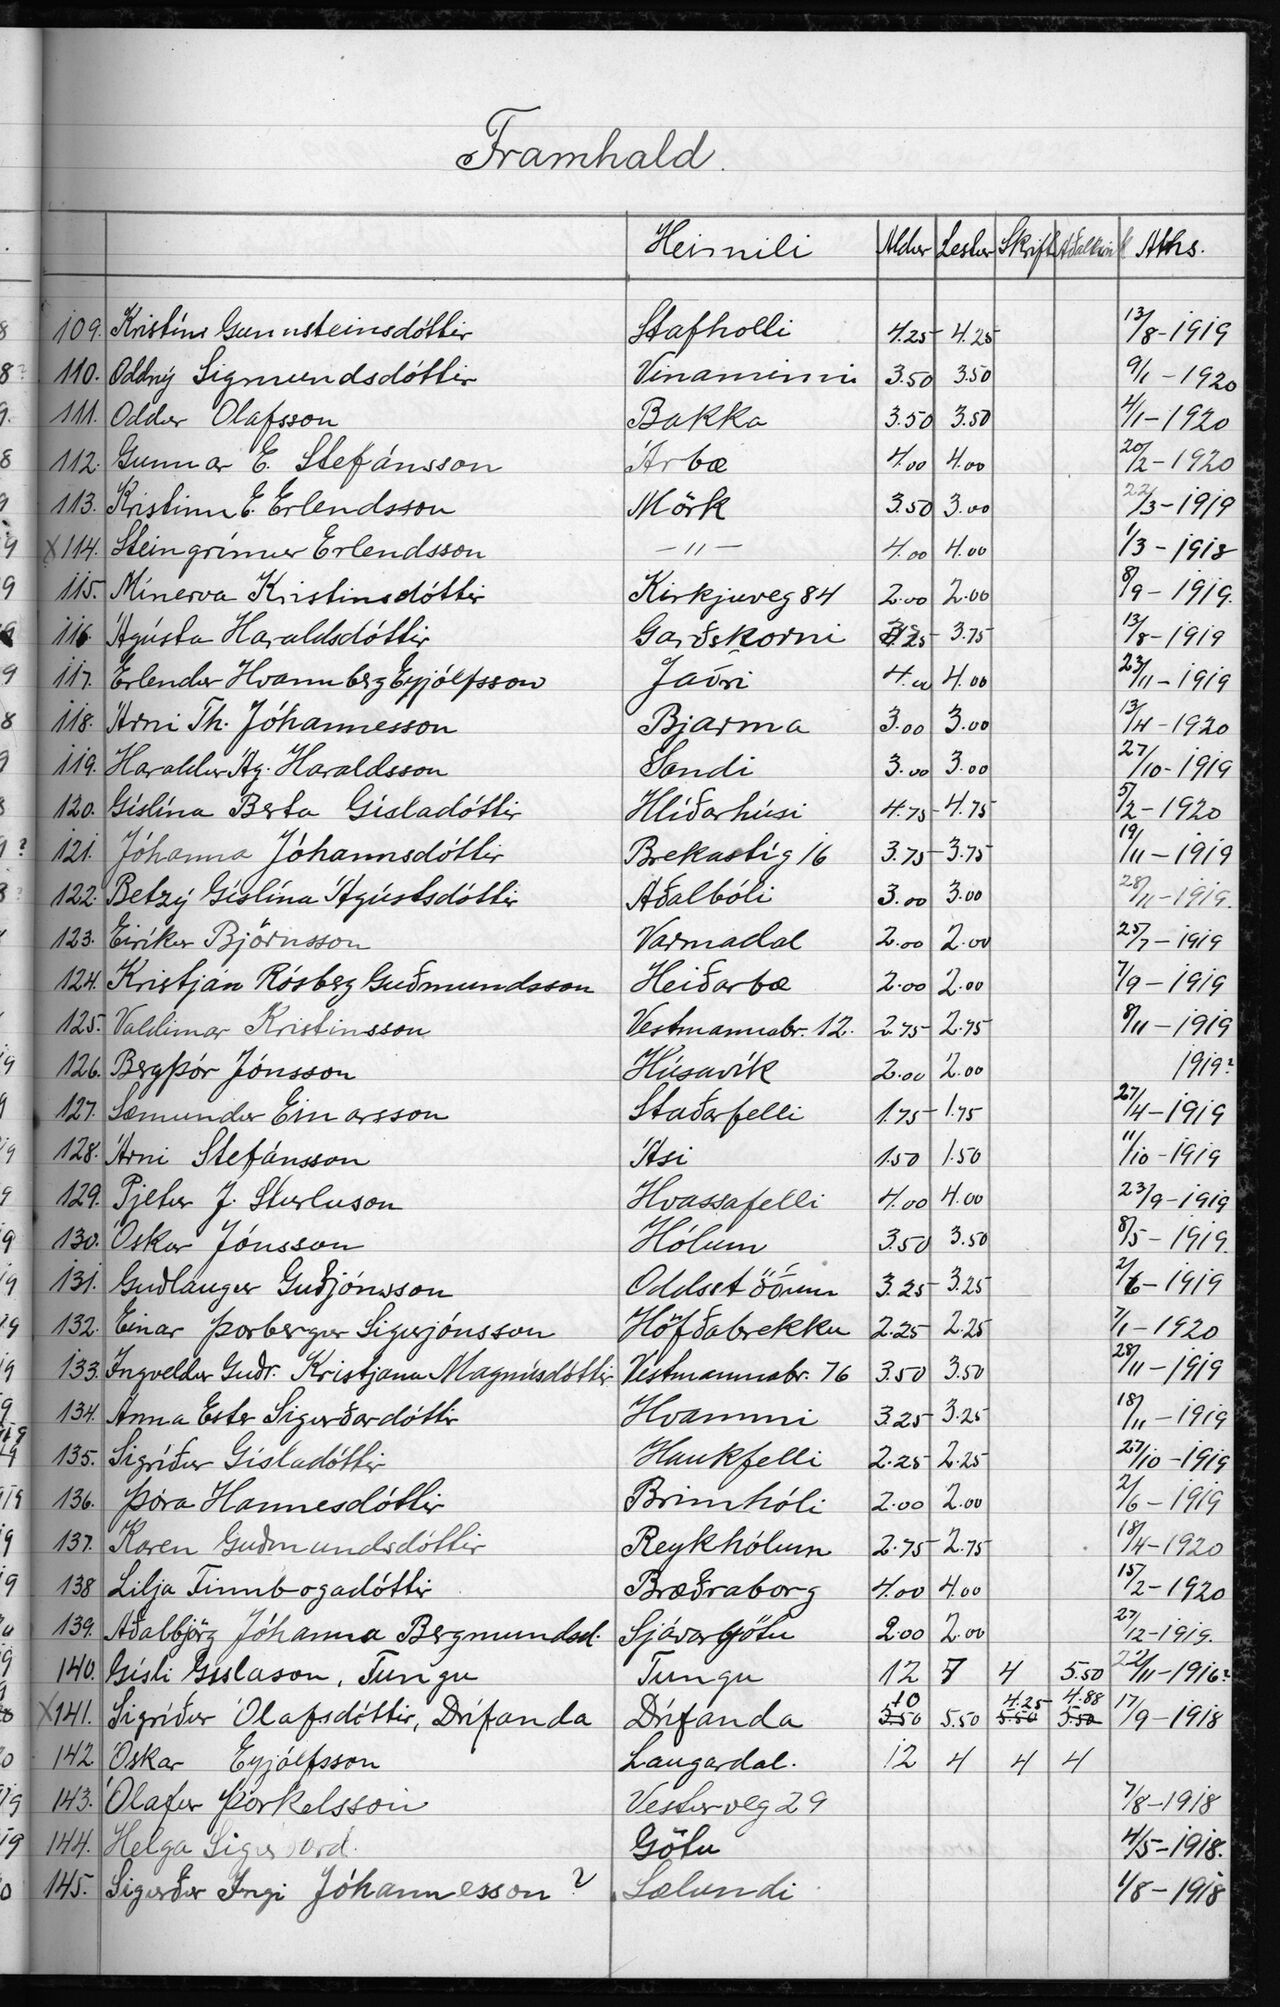 Framhald.
Heimili Aldur Lestur Skrift Aths.
109. Kristín Gunnsteinsdóttir Stafholti 4.25 4.25 13/8-1919
110. Oddný Sigmundsdóttir Vinaminni 3.50 3.50 9/1-1920
111. Oddur Ólafsson Bakka 3.50 3.50 4/1-1920
112. Gunnar E. Stefánsson Árbæ 4.00 4.00 20/2-1920
113. Kristinn E. Erlendsson Mörk 3.50 3.00 22/3-1919
X 114. Steingrímur Erlendsson —"— 4.00 4.00 1/3-1918
115. Minerva Kristinsdóttir Kirkjuveg 84 2.00 2.00 8/9-1919.
116 Ágústa Haraldsdóttir Garðskorni 3.75 13/8-1919
117. Erlendur Hvannberg Eyjólfsson Jaðri 4.00 4.00 23/11-1919
118. Árni Th. Jóhannesson Bjarma 3.00 3.00 13/4-1920
119. Haraldur Ág. Haraldsson Sandi 3.00 3.00 27/10-1919
120. Gíslína Berta Gísladóttir Hlíðarhúsi 4.75 4.75 5/2-1920
121. Jóhanna Jóhannsdóttir Brekastíg 16 3.75 3.75 19/11-1919
122. Betzý Gíslína Ágústsdóttir Aðalbóli 3.00 3.00 28/11-1919.
123. Eiríkur Björnsson Varmadal 2.00 2.00 25/7-1919
124. Kristján Rósberg Guðmundsson Heiðarbæ 2.00 2.00 7/9-1919
125. Valdimar Kristinsson Vestmannabr. 12. 2.75 2.75 8/11-1919
126. Bergþór Jónsson Húsavík 2.00 2.00 1919?
127. Sæmundur Einarsson Staðarfelli 1.75 1.75 27/4-1919
128. Árni Stefánsson Ási 1.50 1.50 11/10-1919
129. Pjetur J. Sturluson Hvassafelli 4.00 4.00 23/9-1919
130. Óskar Jónsson Hólum 3.50 3.50 8/5-1919.
131. Guðlaugur Guðjónsson Oddsstöðum 3.25 3.25 2/6-1919
132. Einar Þorbergur Sigurjónsson Höfðabrekku 2.25 2.25 7/1-1920
133. Ingveldur Guðr. Kristjana Magnúsdóttir Vestmannabr. 76 3.50 3.50 28/11-1919
134. Anna Ester Sigurðardóttir Hvammi 3.25 3.25 18/11-1919
135. Sigríður Gísladóttir Haukfelli 2.25 2.25 27/10-1919
136. Þóra Hannesdóttir Brimhóli 2.00 2.00 2/6-1919
137. Karen Guðmundsdóttir Reykhólum 2.75 2.75 18/4-1920
138 Lilja Finnbogadóttir Bræðraborg 4.00 4.00 15/2-1920
139. Aðalbjörg Jóhanna Bergmundsd. Sjávargötu 2.00 2.00 27/12-1919.
140. Gísli Gíslason, Tungu Tungu 12 7 4 5.50 22/11-1916?
X 141. Sigríður Ólafsdóttir, Drífanda Drífanda 10 3.50 5.50 4.25 5.50 4.88 5.50 17/9-1918
142 Óskar Eyjólfsson Laugardal. 12 4 4 4
143. Ólafur Þorkelsson Vesturveg 29 7/8-1918
144. Helga Götu 4/5-1918.
145. Sigurður Ingi Jóhannesson? Sælundi 1/8-1918